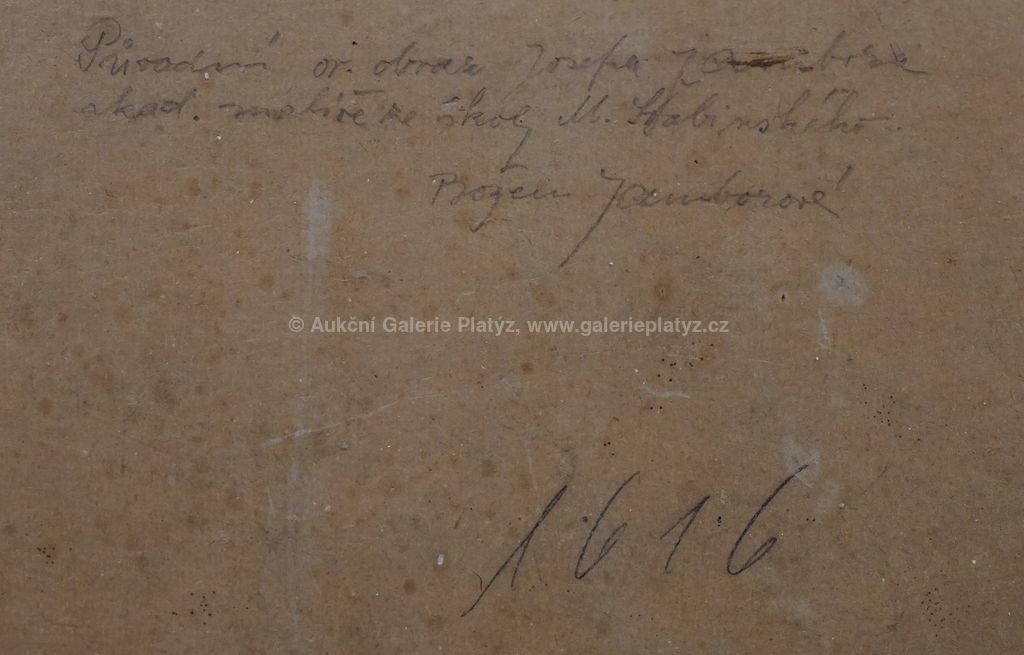 Původní or. obraz Josefa Jambora
akad. malíře ze školy M. Švabinského.
Božen Jamborové
© Aukční Galerie Platýz, www.galerieplatyz.cz
1616